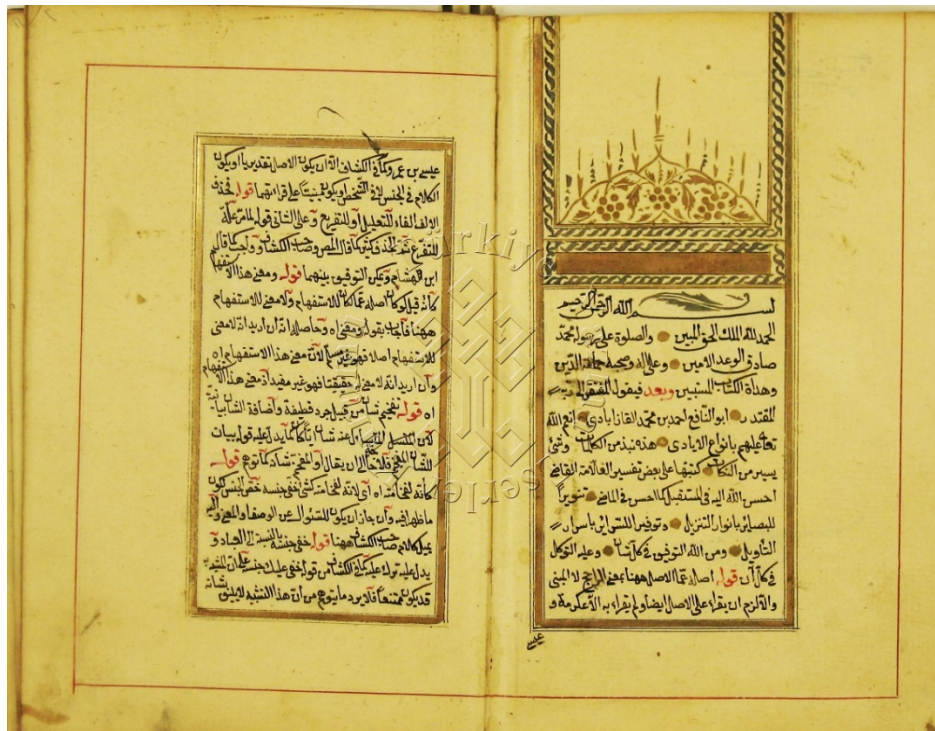 بسم الله الرحمن الرحيم
الحمد لله الملك الحق المبين والصلوة على رسوله محمد
صادق الوعد الامين وعلى اله وصحبه حماة الدين
وهداة الكتاب المستبين وبعد فيقول المفتقر الى
المقتدر ابو النافع احمد بن محمد القازابادي انعم الله
تعا عليهم بانواع الايادي هذه نبذ من الكلمات وشئ
يسير من النكات كتبتها على بعض تفسير العلامة القاضي
احسن الله اليه في المستقبل كما احسن في الماضي تنويرا
للبصاير بانوار التنزيل وتوفيرا للسراير باسرار
التأويل ومن الله التوفيق في كل شان وعليه التوكل
في كل آن قوله اصله عما الاصل ههنا بمعنى الراجح لا المبنى
والالزم ان يقراء على الاصل ايضا ولم يقراء به الا عكرمة و
عيسى
عيسى بن عمر وكما في الكشاف الا ان يكون الاصل تقديريا او يكون
الكلام في الجنس لا في الشخص او يكون مبنيا على قراءتهما قوله فحذف
الالف الفاء للتعليل او للتفريع وعلى الثاني قوله لما مر علة
للتفريع ثم الحذف كثير كما قال المص وصاحب الكشاف واجب كما قال
ابن الهشام ويمكن التوفيق بينهما قوله ومعنى هذا الاستفهام
كأنه قيل لو كان اصله عما كان للاستفهام ولا معنى للاستفهام
ههنا فاجاب بقوله ومعنى اه وحاصله انه ان اريد انه لا معنى
للاستفهام اصلا فهو غير مسلم لانه معنى هذا الاستفهام اه
وان اريد انه لا معنى له حقيقتا فهو غير مفيد اذ معنى هذا الاستفهام
اه قوله تفخيم شان من قبيل جرد قطيفة واضافة الشان
للشان المفخم فلا حاجة الى ان يقال او المفخم شانه كما توهم قوله
كأنه لفخامته اه اى لانه لفخامته كشئ خفى جنسه خفى الجنس كون
ما ظهر فيه وان جاز ان يكون للسئوال عن الوصف والمعنى واليه
يميل كلام صاحب الكشاف ههنا قوله خفى جنسه بالنسبة الى العباد و
يدل عليه ترك عليه كما في الكشاف من قوله خفى عليك جنسه على ان المشبه به
قد يكون ممتنعا فلا يرد ما يتوهم من ان هذا التشبيه لا يليق بشانه